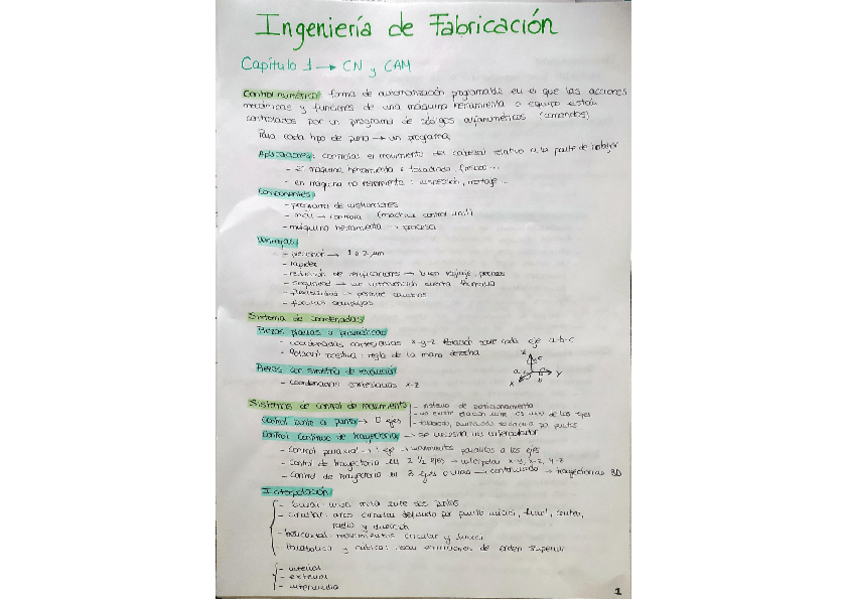 Ingeniería de Fabricación
Capítulo 1 → CN y CAM
Control numérico: forma de automatización programable en el que las acciones
mecánicas y funciones de una máquina herramienta o equipo están
controlados por un programa de códigos alfanuméricos (comandos)
Para cada tipo de pieza → un programa
Aplicaciones: controlar el movimiento del cabezal relativo a la parte de trabajo
- máquina herramienta: taladrado,
- en máquina no herramienta: inspección, montaje...
Componentes:
- programa de instrucciones
- MCU → controla (machine control unit)
- máquina herramienta → procesa
Ventajas:
- precisión → 1 o 2 μm
- rapidez
- reducción de → buen reglaje,
- seguridad → intervención
- flexibilidad →
- formas complejas
Sistema de coordenadas
Piezas planas o prismáticas
- coordenadas cartesianas x-y-z Rotación sobre cada eje a-b-c
- Rotación positiva: regla de la mano derecha
Piezas con simetría de revolución
- coordenadas cartesianas x-z
Sistemas de control de movimiento
- sistema de posicionamiento
Control punto a punto → ejes
- no existe relación entre el mov. de los ejes
- taladrado, punzonado, soldadura por puntos
Control continuo de trayectoria → se necesita un interpolador
- control paraxial → 1 eje → movimientos paralelos a los ejes
- control de trayectoria en 2 1/2 ejes → interpolar x-y, x-z, y-z
- control de trayectoria en 3 ejes o más → continuado → trayectorias 3D
Interpolación
- lineal: línea recta entre dos puntos
- circular: arcos circulares definido por punto inicial, final, centro,
radio y dirección
- helicoidal: movimientos circular y lineal
- Parabólica y cúbica: usan ecuaciones de orden superior
- interior
- exterior
- intermedio
x
y
z
a
b
c
1